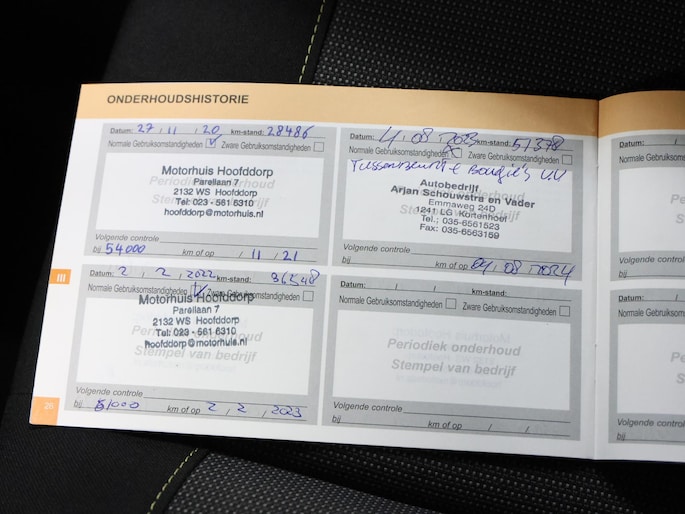 ONDERHOUDSHISTORIE
Datum: 27 / 11 / 20 km-stand: 28486
Normale Gebruiksomstandigheden Zware Gebruiksomstandigheden
Motorhuis Hoofddorp
Parellaan 7
2132 WS Hoofddorp
Tel: 023 - 561 6310
hoofddorp@motorhuis.nl
Volgende controle
bij 54000 km of op / 11 / 21
Datum: 4 / 08 / 2023 km-stand: 51378
Normale Gebruiksomstandigheden Zware Gebruiksomstandigheden
Tussenbeurt + Bougie's V.V
Autobedrijf
Arjan Schouwstra en Vader
Emmaweg 24D
1241 LG Kortenhoef
Tel.: 035-6561523
Fax: 035-6563159
Volgende controle
bij km of op 04 / 08 / 2024
III
Datum: 2 / 2 / 2022 km-stand:
Normale Gebruiksomstandigheden Zware Gebruiksomstandigheden
Motorhuis Hoofddorp
Parellaan 7
2132 WS Hoofddorp
Tel: 023 - 561 6310
hoofddorp@motorhuis.nl
Periodiek onderhoud
Stempel van bedrijf
Volgende controle
bij km of op 2 / 2 / 2023
Datum: / / km-stand:
Normale Gebruiksomstandigheden Zware Gebruiksomstandigheden
Periodiek onderhoud
Stempel van bedrijf
Volgende controle
bij km of op / /
26
Datum: /
Normale Gebruik
Volgende controle
bij
Datum: /
Normale Gebruik
Volgende controle
bij